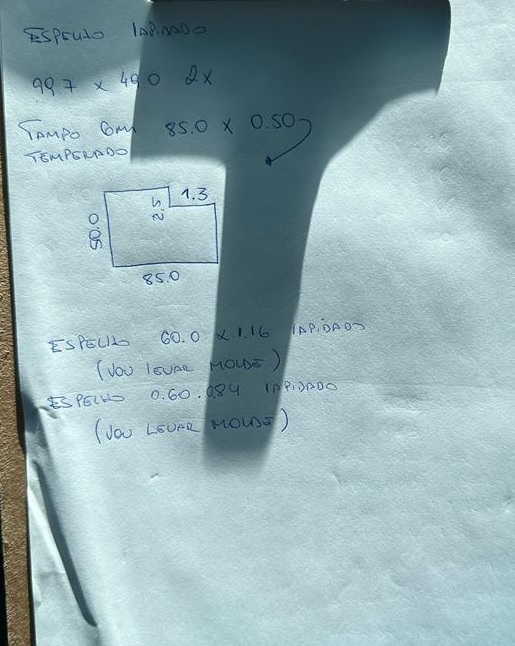 ESPELHO LAPIDADO
99.7 x 49.0 2x
TAMPO 6mm 85.0 x 0.50
TEMPERADO
1.3
2.5
500
85.0
ESPELHO 60.0 x 1.16 LAPIDADO
(VOU LEVAR MOLDE)
ESPELHO 0.60.084 LAPIDADO
(VOU LEVAR MOLDE)